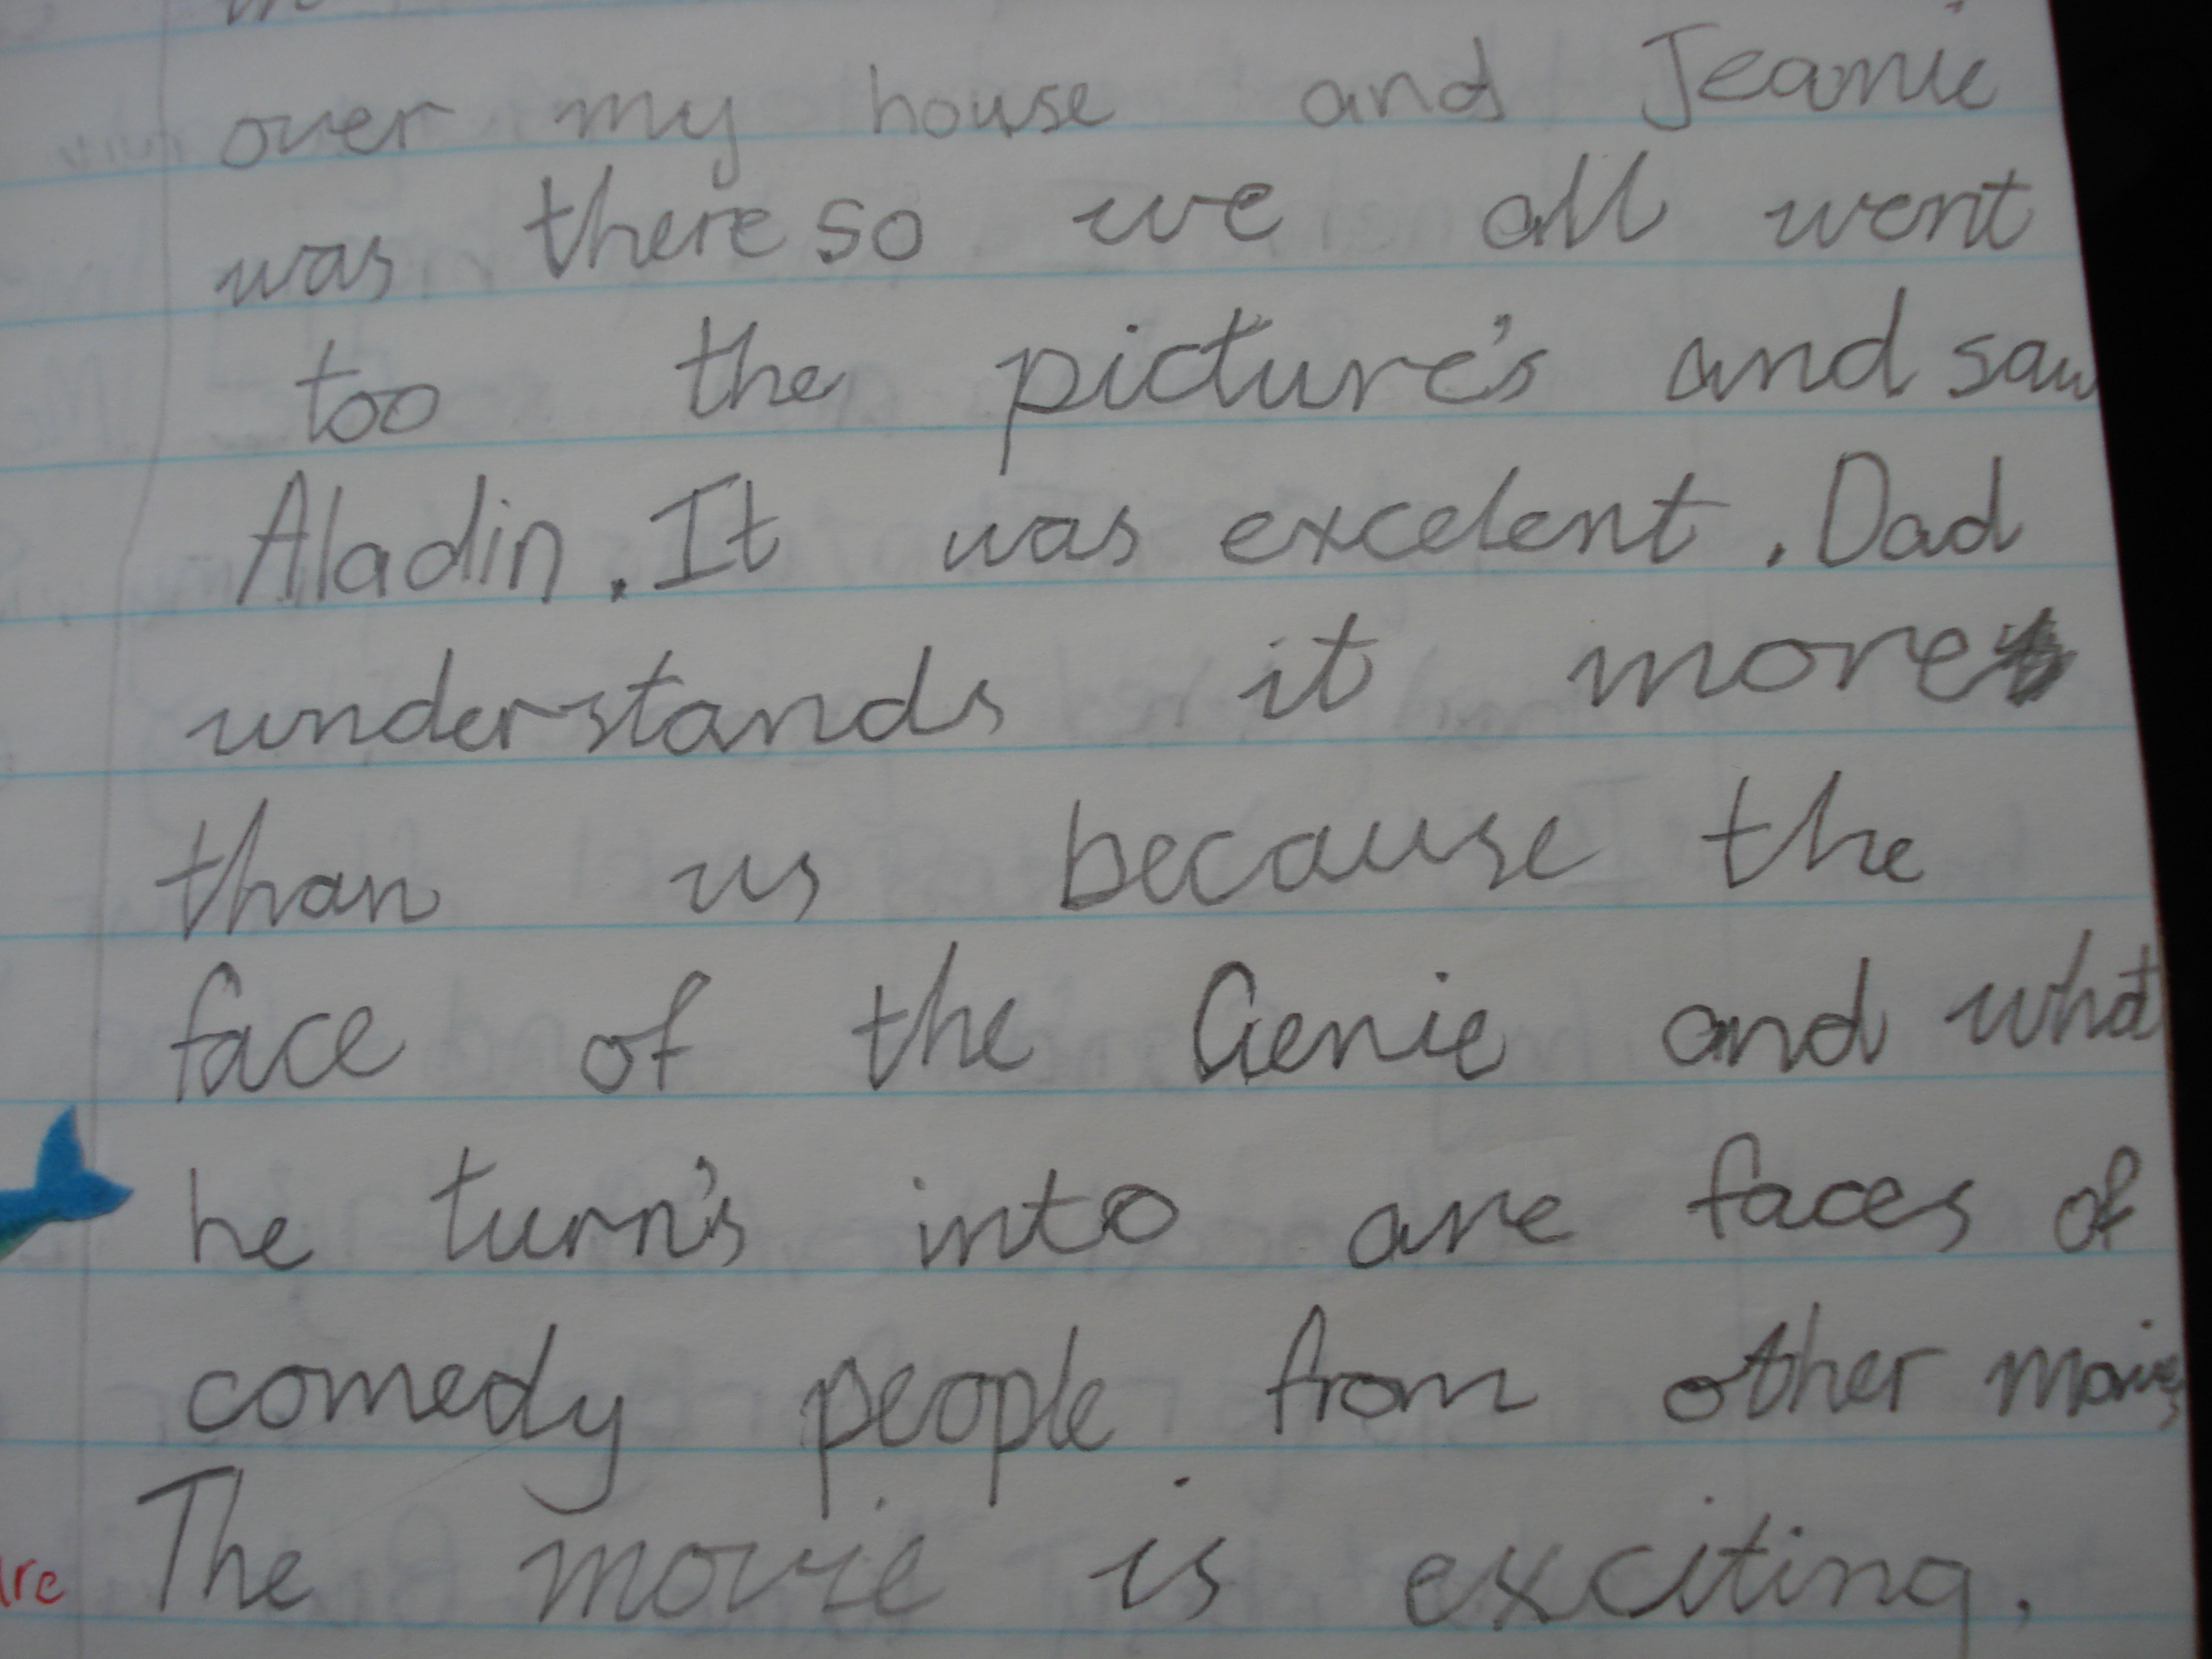 over my house and Jeanie
was there so we all went
too the picture's and saw
Aladin. It was excelent. Dad
understands it more
than us because the
face of the Genie and what
he turn's into are faces of
comedy people from other movies
The movie is exciting.